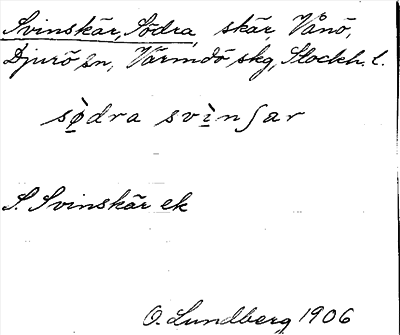 Svinskär, Södra, skär, Vånö,
Djurö sn, Värmdö skg, Stockh. l.
sø̀dra svìnʃar
S. Svinskär ek
O. Lundberg 1906